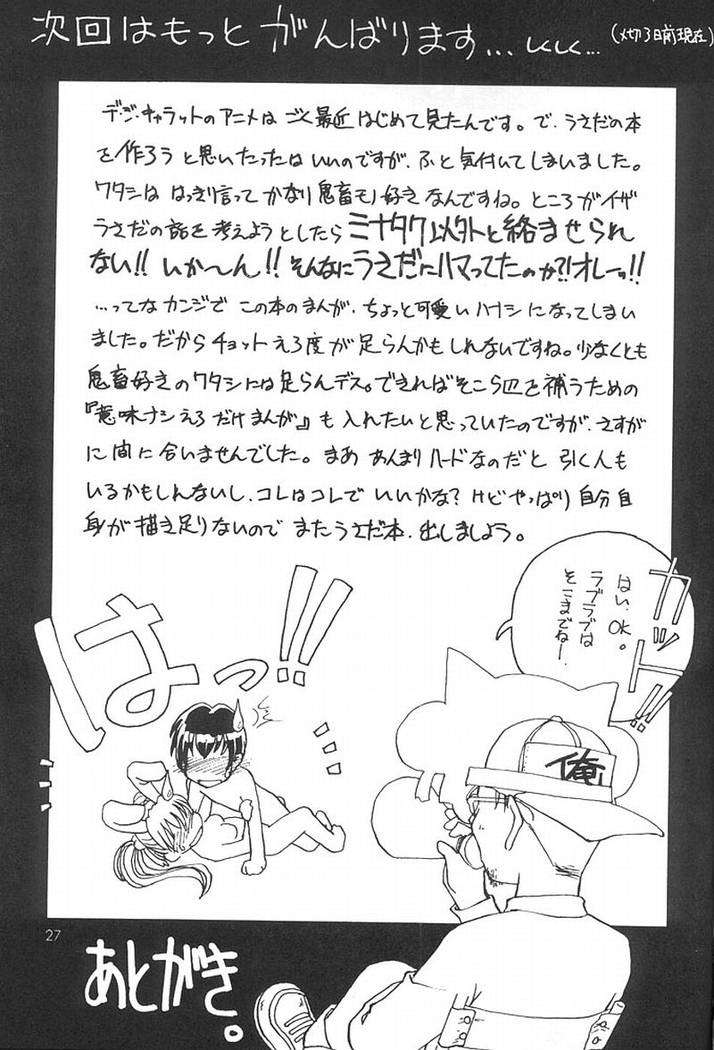 次回はもっとがんばります...しくしく...
(〆切3日前現在)
デ・ジ・キャラットのアニメは ごく最近 はじめて見たんです。で、うさだの本
を作ろうと思いたったはいいのですが、ふと気付いてしまいました。
ワタシは はっきり言って かなり鬼畜モノ好き なんですね。ところがイザ
うさだの話を考えようとしたら ミナタク以外と絡ませられ
ない!! いか〜ん!! そんなにうさだにハマってたのか?! オレーっ!!
…ってなカンジで この本のまんが、ちょっと可愛いハナシになってしまい
ました。だからチョットえろ度が足らんかもしれないですね。少なくとも
鬼畜好きのワタシには足らんデス。できればそこら辺を補うための
『意味ナシえろだけまんが』も入れたいと思っていたのですが、さすが
に間に合いませんでした。まあ あんまりハードなのだと 引く人も
いるかもしんないし、コレはコレでいいかな? けどやっぱり自分自
身が描き足りないので またうさだ本、出しましょう。
カット!!
はい、OK。
ラブラブは
そこまでねー。
はっ!!
俺
27
あとがき。